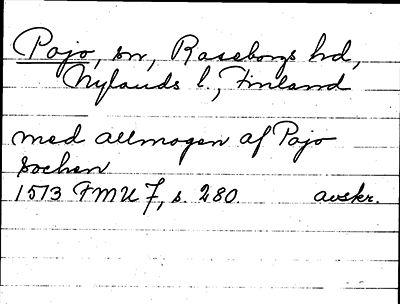 Pojo, sn, Raseborgs hd,
Nylands l., Finland
med allmogen af Pojo
sochen
1573 FMU 7, s. 280. avskr.